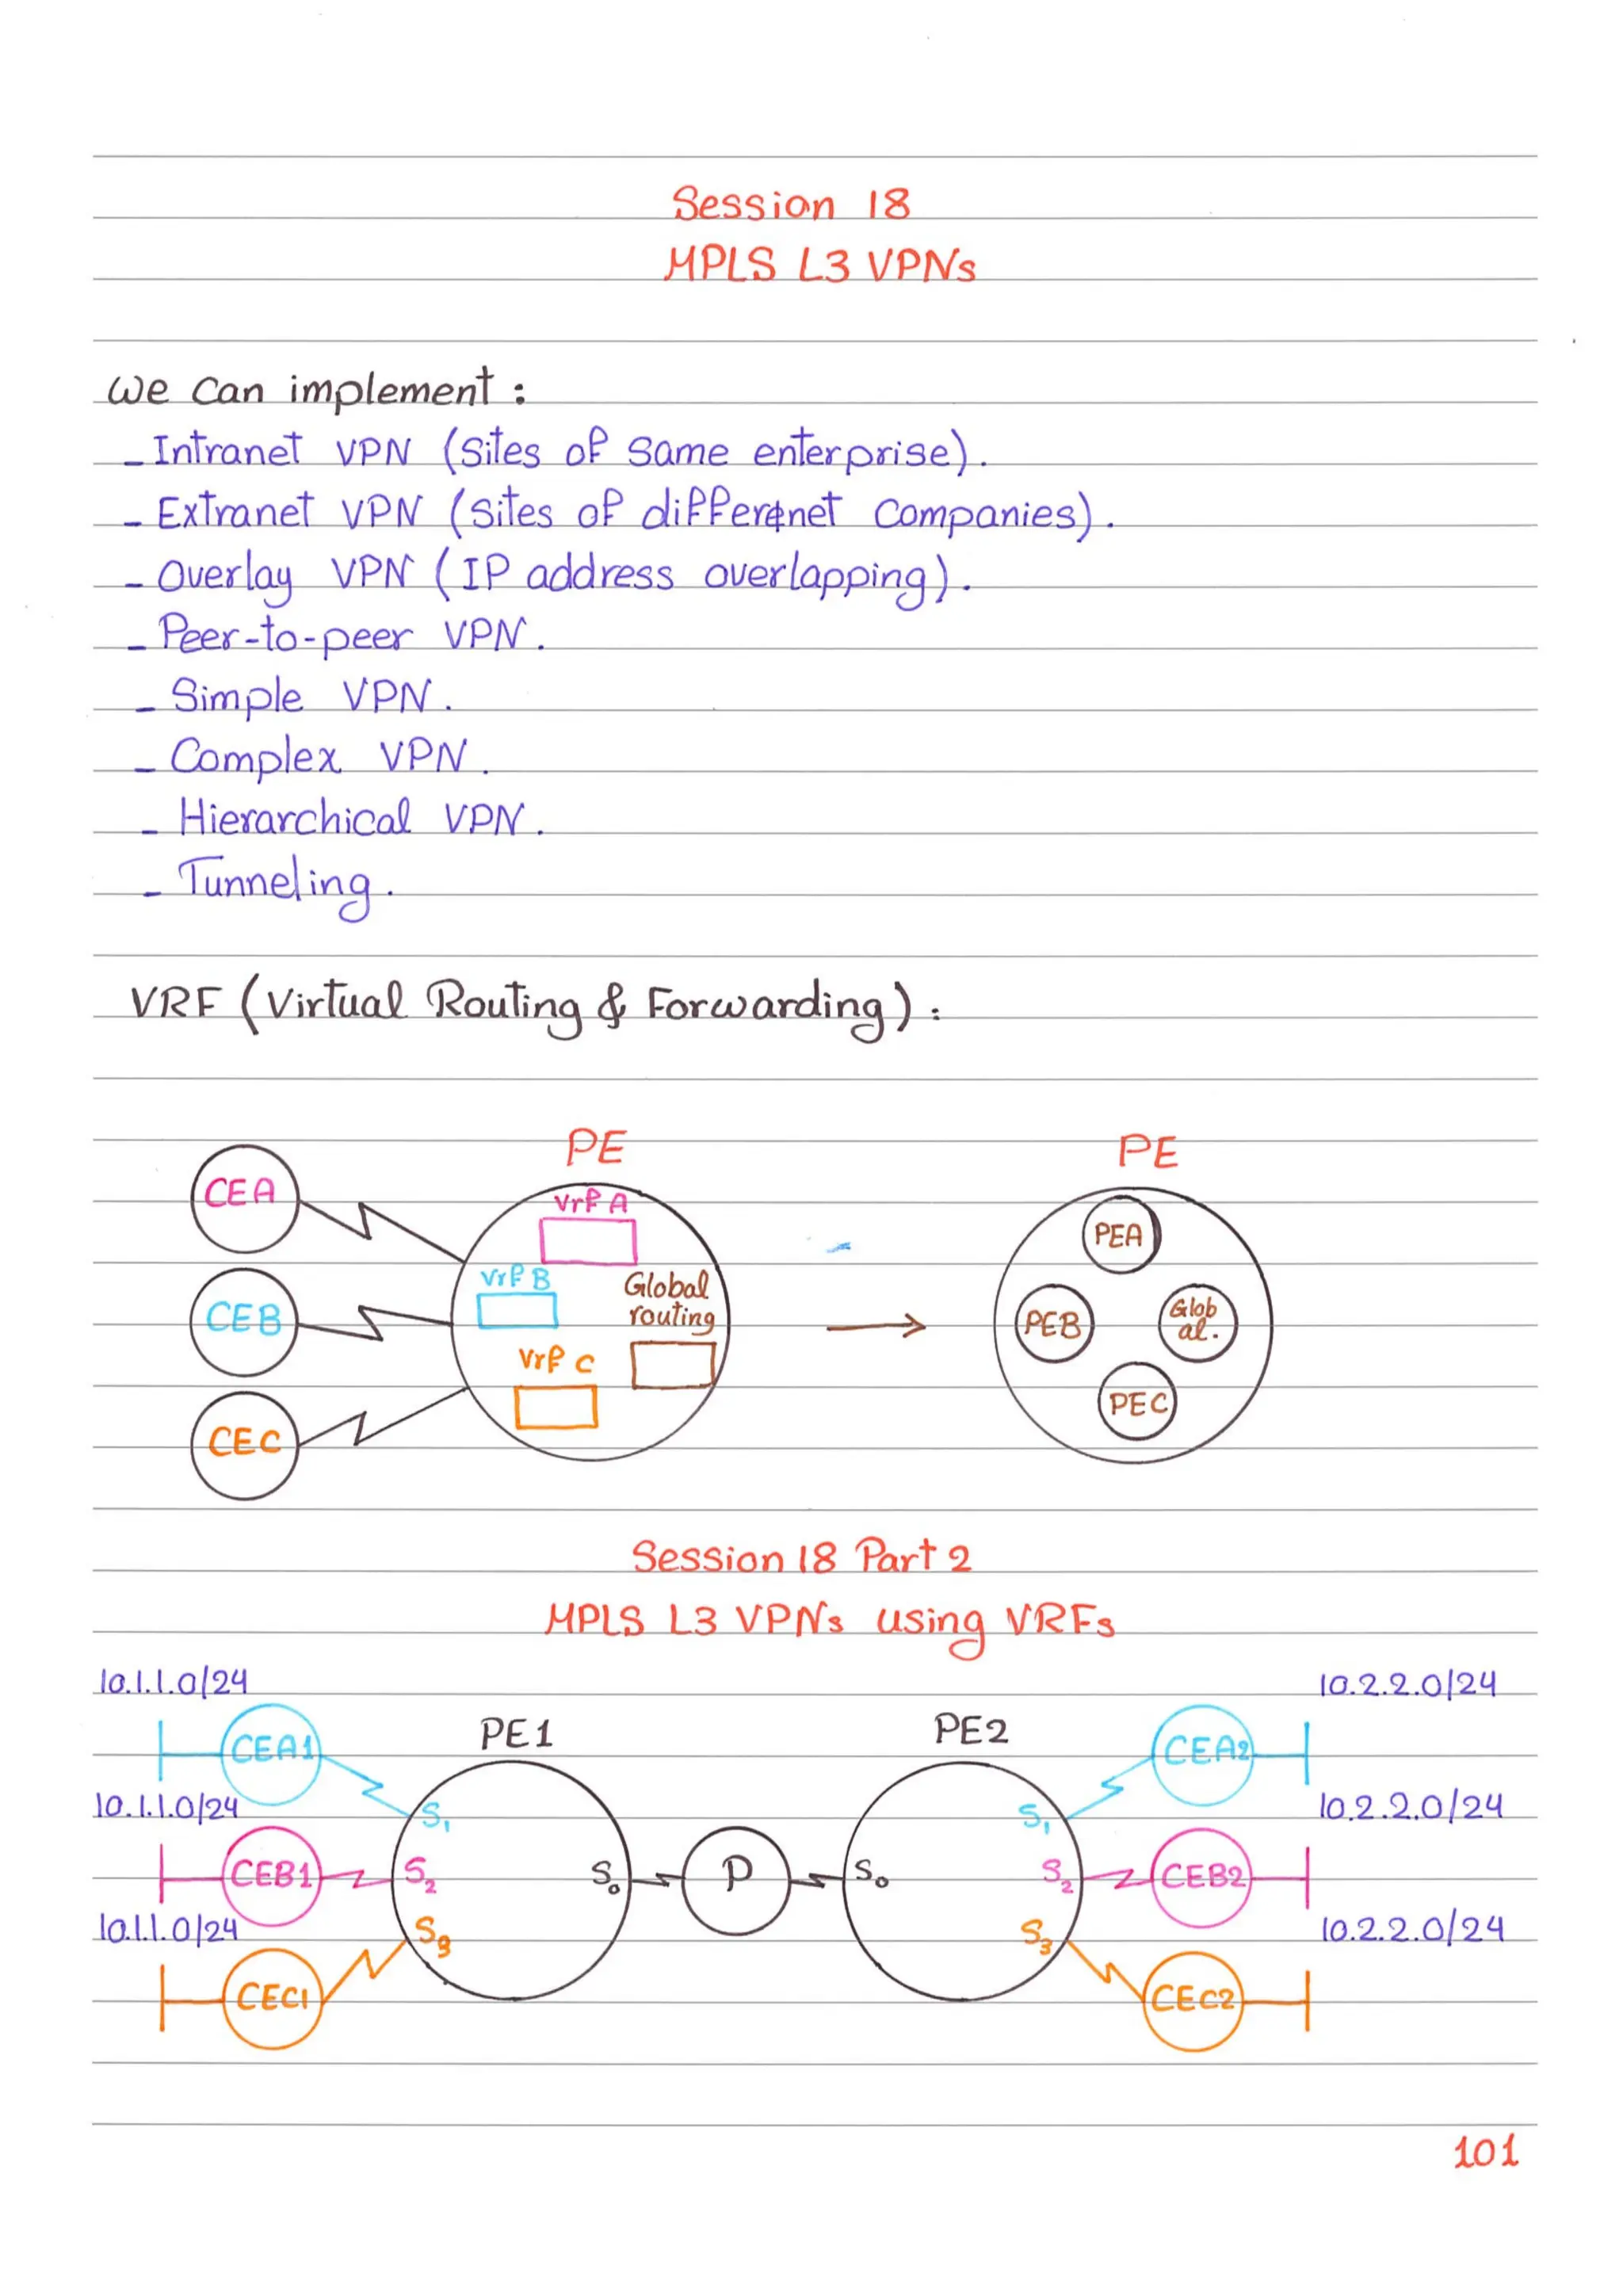 Session 18
MPLS L3 VPNs
We Can implement :
- Intranet VPN (Sites of Same enterprise).
- Extranet VPN (Sites of differenet Companies).
- Overlay VPN (IP address overlapping).
- Peer-to-peer VPN.
- Simple VPN.
- Complex VPN.
- Hierarchical VPN.
- Tunneling.
VRF (Virtual Routing & Forwarding) :
PE
PE
CEA
Vrf A
PEA
CEB
Vrf B
Global
routing
PEB
Glob
al.
CEC
Vrf C
PEC
Session 18 Part 2
MPLS L3 VPNs using VRFs
10.1.1.0/24
10.2.2.0/24
CEA1
PE1
PE2
CEA2
10.1.1.0/24
S1
S1
10.2.2.0/24
CEB1
S2
S0
P
S0
S2
CEB2
10.1.1.0/24
S3
S3
10.2.2.0/24
CEC1
CEC2
101